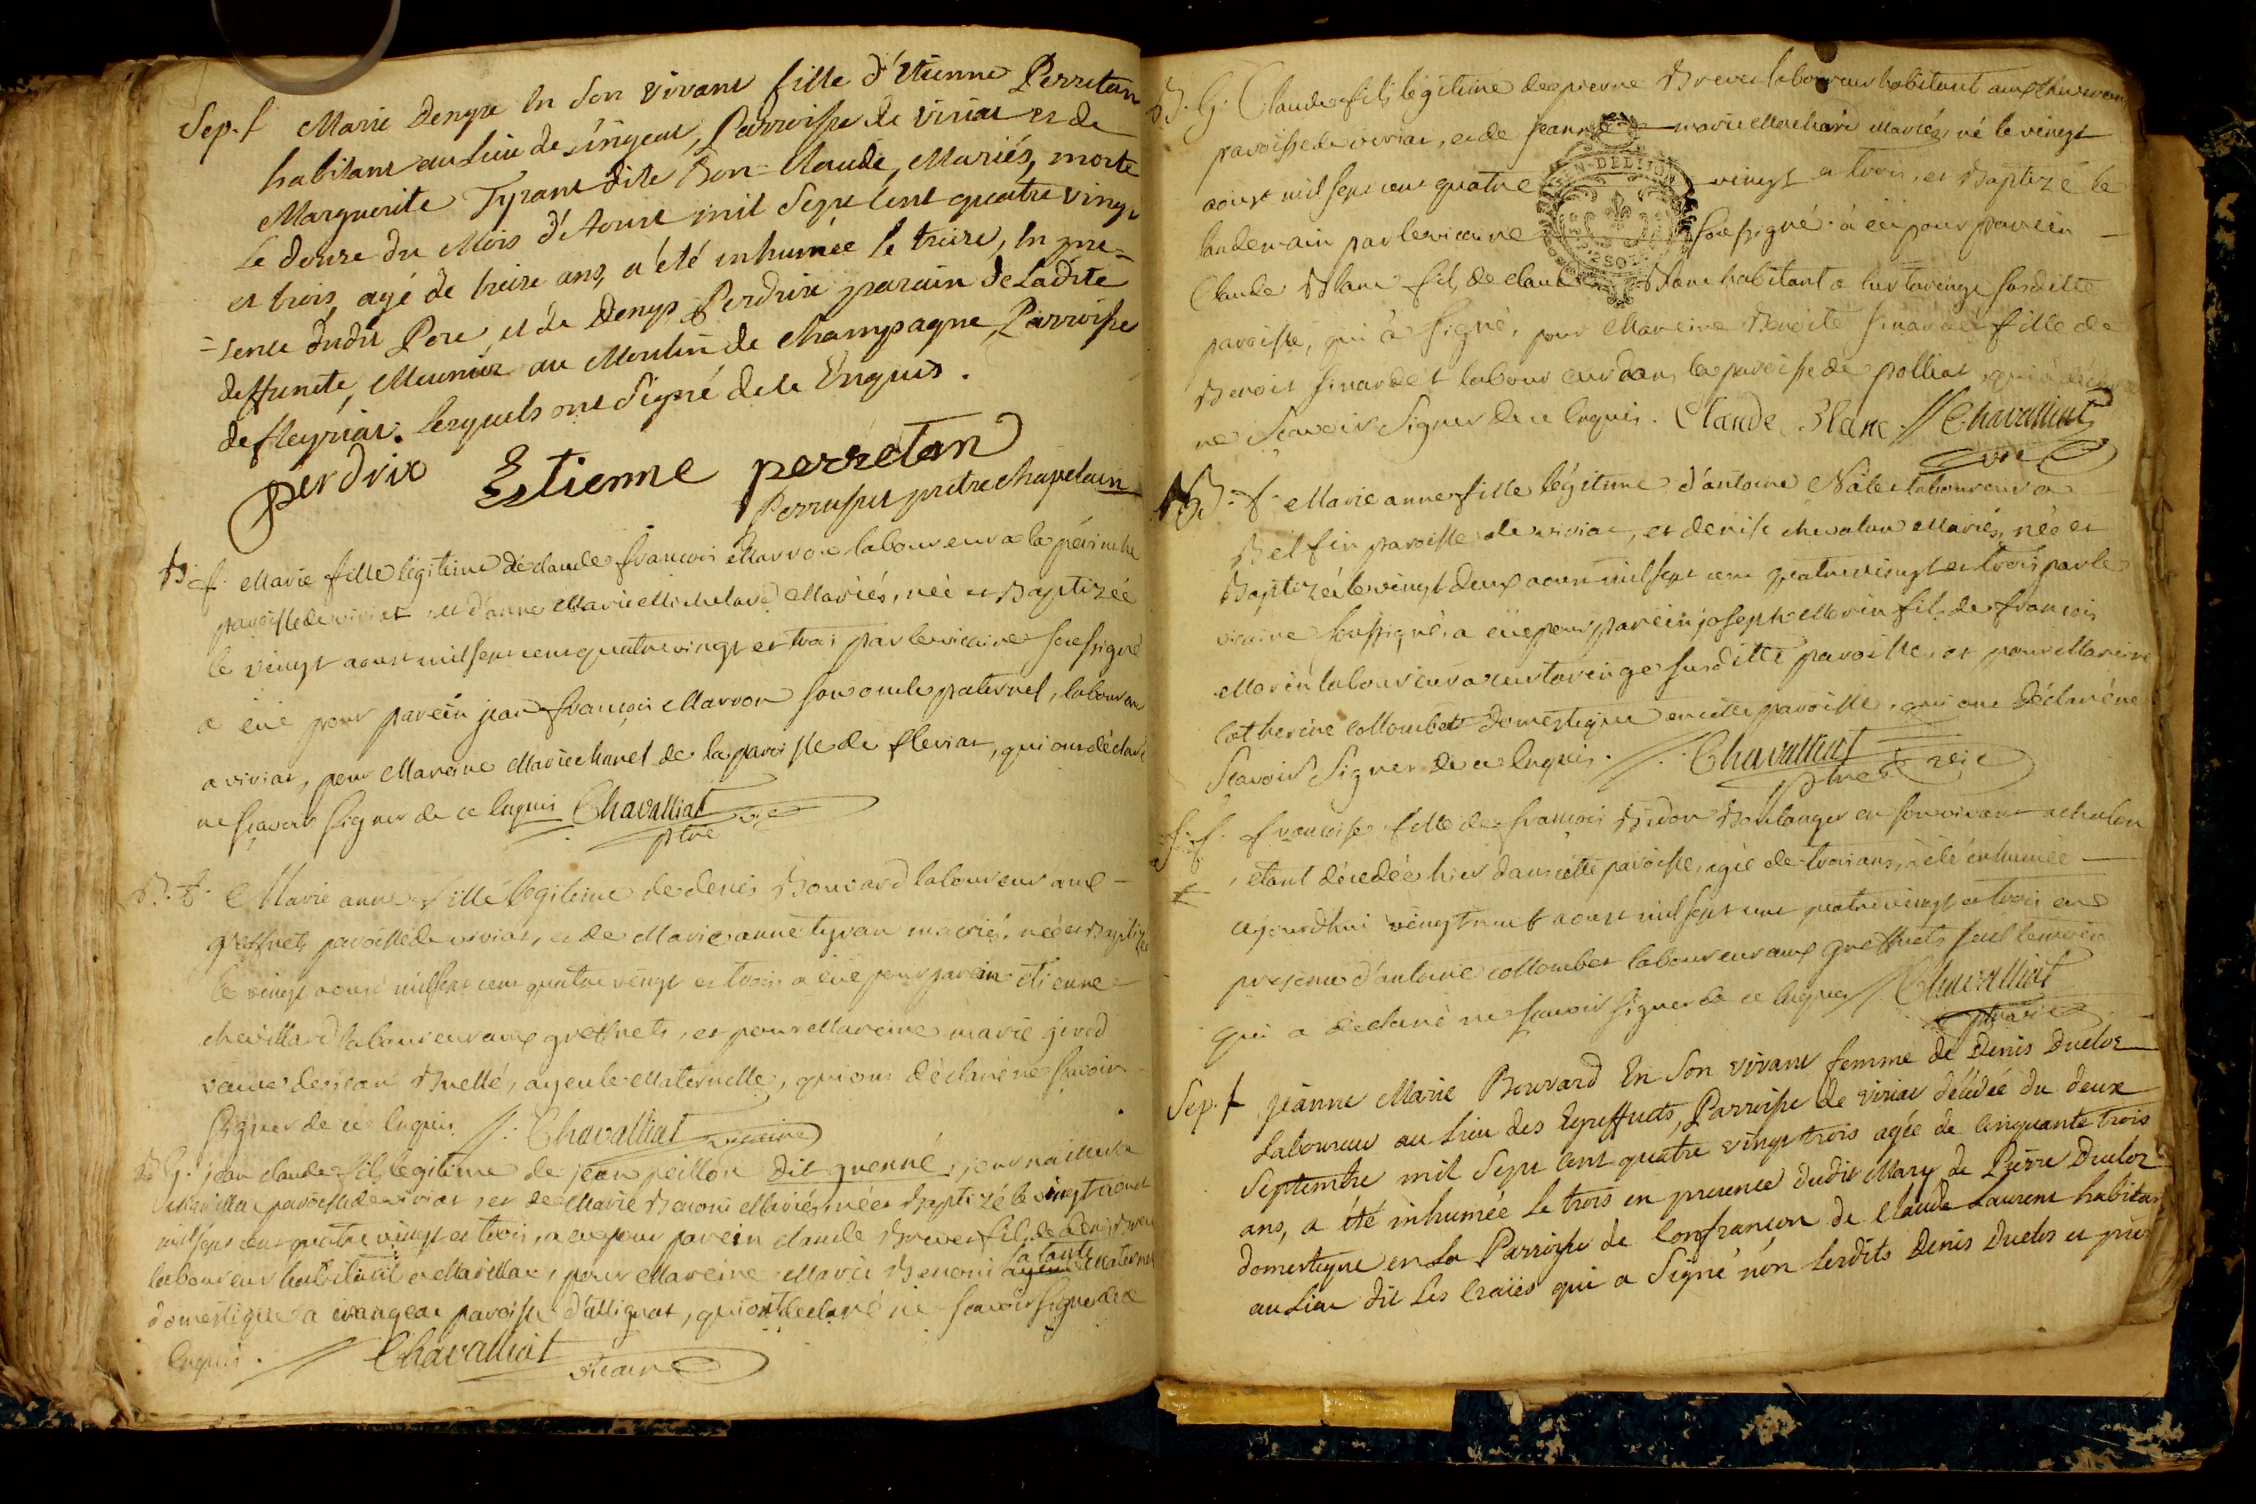 Sep. f Marie Denyse En Son vivant fille d'Etienne Perretan
habitant au lieu de Singeat, Parroisse de viriat et de
Marguerite Tyrant dite Bon-Claude, Mariés, morte
Le douze du Mois d'Aoust mil Sept Cent quatre vingt
et trois, agé de treize ans, a été inhumée le treize, en pre=
=sence dudit Pere, et de Denys Perdrix parain de Ladite
deffuncte, Meunier au Moulin de Champagne, Parroisse
de fleyriat. lesquels ont Signé de ce Enquis.
perdrix Estienne perretan
prêtre chapelain
B. f. Marie fille légitime de claude françois Marron laboureur a la
paroisse de viriat et d'anne Marie Michelard Mariés, née et Baptizée
le vingt aoust mil sept cent quatre vingt et trois par le vicaire soussigné
a eue pour parein jean françois Marron son oncle paternel, laboureur
a viriat, pour Mareine Marie chanel de la paroisse de fleriat, qui ont déclaré
ne sçavoir signer de ce Enquis Chavalliat
ptre vic
B. f. Marie anne fille légitime de denis Bouvard laboureur aux
greffets paroisse de viriat, et de Marie anne tyran mariés, née et Baptizée
le vingt aoust mil sept cent quatre vingt et trois a eue pour parein etienne
chevillard laboureur aux greffets, et pour Mareine marie girod
veuve de jean Buellé, ayeule Maternelle, qui ont déclaré ne sçavoir
signer de ce Enquis. Chavalliat vicaire
B. G. jean claude fils légitime de jean peillon dit guenné, journaillier a
paroisse de viriat, et de Marie Benoni Mariés, né et Baptizé le vingt aoust
mil sept cent quatre vingt et trois, a eue pour parein claude Brevet fils de denis Brevet
laboureur habitant a Marillat, pour Mareine Marie Benoni sa tante maternelle
domestique a paroisse d'attignat, qui ont declaré ne sçavoir signer de ce
Enquis. Chavalliat
vicaire
B. G. Claude fils légitime de pierre Brevet laboureur habitant aux
paroisse de viriat, et de jeanne marie Mariés, né le vingt
aoust mil sept cent quatre vingt et trois, et Baptizé le
landemain par le vicaire soussigné a eü pour parein
Claude Blanc fils de claude Blanc habitant a curtaringe susditte
paroisse, qui a signé, pour Mareine Benoite fille de
Benoit laboureur dans la paroisse de polliat, qui a déclaré
ne Sçavoir Signer de ce Enquis. Claude Blanc Chavalliat
vic
B. f. Marie anne fille légitime d'antoine laboureur a
Belfin paroisse de viriat, et denise chevalon Mariés, née et
Baptizée le vingt deux aoust mil sept cent quatre vingt et trois par le
vicaire soussigné, a eüe pour parein joseph Morin fils de françois
Morin laboureur a curtaringe susditte paroisse, et pour Mareine
catherine collombet domestique en cette paroisse, qui ont déclaré ne
Sçavoir Signer de ce Enquis. Chavalliat
ptre vic
S. f. françoise fille de francois Bidon Boulanger en son vivant a chalon
etant décedée hier dans cette paroisse, agée de trois ans, a été inhumée
aujourdhui vingt neuf aoust mil sept cent quatre vingt et trois en
presence d'antoine collombet laboureur aux greffets seul temoin
qui a déclaré ne sçavoir signer de ce Enquis Chavalliat
ptre vic
Sep. f jeanne Marie Bouvard En Son vivant femme de Denis Duclos
Laboureur au Lieu des Egreffuets, Parroisse de viriat décédée du deux
Septembre mil Sept Cent quatre vingt trois agée de Cinquante trois
ans, a été inhumée Le trois en presence dudit Mary de Pierre Duclos
domestique en La Parroisse de Confrançon de Claude Laurent habitant
au Lieu dit Les Craies qui a Signé nón lesdits Denis Duclos et